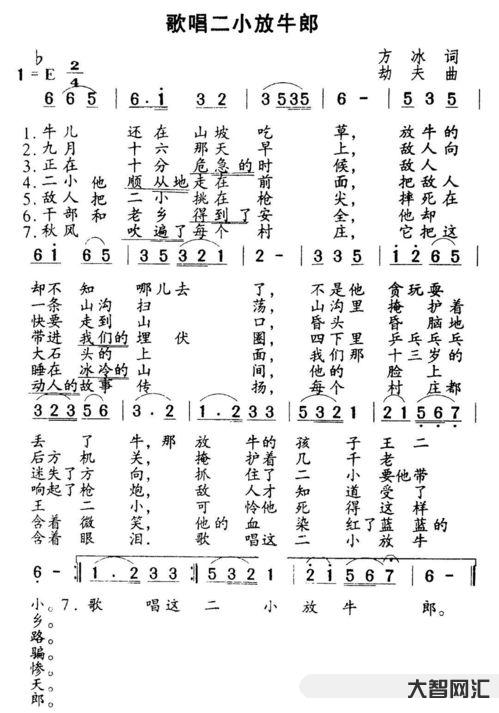 歌唱二小放牛郎
1=♭E 2/4
方冰词
劫夫曲
6 6 5 | 6·1 3 2 | 3 5 3 5 | 6 - | 5 3 5 |
1.牛儿 还在山坡吃草,放牛的
2.九月 十六那天早上,敌人向
3.正在 十分危急的时候,敌人
4.二小他 顺从地走在前面,把敌人
5.敌人把 二小挑在枪尖,摔死在
6.干部和 老乡得到了安全,他却
7.秋风 吹遍了每个村庄,它把这
却不知哪儿去了,不是他贪玩耍
一条山沟扫荡,山沟里掩护着
快要走到山口,昏头昏脑地
带进我们的埋伏圈,四下里乒乓乒乓的
大石头的上面,我们那十三岁的
睡在冰冷的山间,他的脸上
动人的故事传扬,每个村庄都
3 2 3 2 3 5 6 | 3·2 | 1·2 3 3 | 5 3 2 1 | 2 1 5 6 7 |
丢了牛,那放牛的孩子王二
后方机关,掩护着几千老
迷失了方向,抓住了二小要他带
响起了枪炮,敌人才知道受了
王二小,可怜他死得这样
含着微笑,他的血染红了蓝蓝的
含着眼泪.歌唱这二小放牛
6 - :‖ 1·2 3 3 :‖ 5 3 2 1 | 2 1 5 6 7 | 6 - ‖
小。7.歌唱这二小放牛郎。
乡。
路。
骗。
惨。
天。
郎。
大智网汇